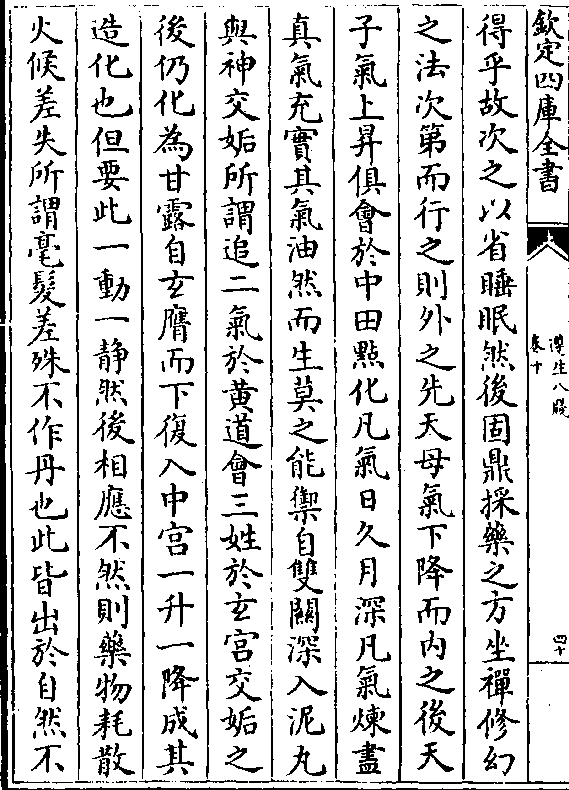 欽定四庫全書
遵生八牋
卷十
四十
得乎故次之以省睡眠然後固鼎採藥之方坐禪修幻
之法次第而行之則外之先天母氣下降而内之後天
子氣上昇俱會於中田點化凡氣日久月深凡氣煉盡
真氣充實其氣油然而生莫之能禦自雙關深入泥丸
與神交姤所謂追二氣於黄道會三姓於玄宫交姤之
後仍化為甘露自玄膺而下復入中宫一升一降成其
造化也但要此一動一静然後相應不然則藥物耗散
火候差失所謂毫髮差殊不作丹也此皆出於自然不